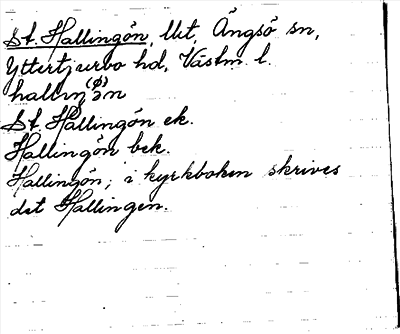 St. Hallingön, llt, Ängsö sn,
Yttertjurbo hd, Västm. l.
hallıŋ(ø)ən
St. Hallingön ek.
Hallingön bek.
Hallingön; i kyrkboken skrives
det Hallingen.